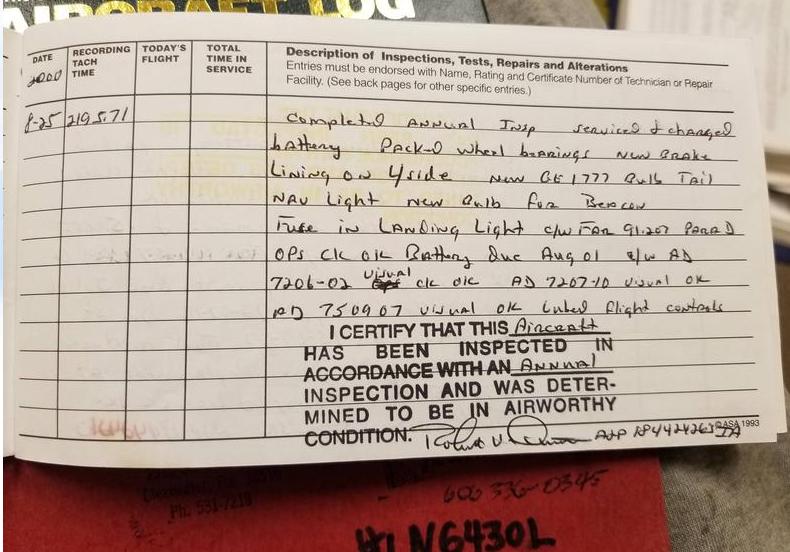 AIRCRAFT LOG
DATE
2000
RECORDING
TACH
TIME
TODAY'S
FLIGHT
TOTAL
TIME IN
SERVICE
Description of Inspections, Tests, Repairs and Alterations
Entries must be endorsed with Name, Rating and Certificate Number of Technician or Repair
Facility. (See back pages for other specific entries.)
8-25 2195.71 Completed Annual Insp serviced & charged
battery Packed wheel bearings new Brake
Lining on L/side new GE 1777 Bulb Tail
NAV Light new Bulb for Beacon
Fuse in Landing Light c/w FAR 91.207 Para D
OPs ck ok Battery Due Aug 01 c/w AD
7206-02 visual ck ok AD 7207-10 visual ok
AD 750907 visual ok Lubed flight controls
I CERTIFY THAT THIS Aircraft
HAS BEEN INSPECTED IN
ACCORDANCE WITH AN Annual
INSPECTION AND WAS DETER-
MINED TO BE IN AIRWORTHY
CONDITION. Robert A&P IA
©ASA 1993
Ph. 531-7218
606 336-0345
N6430L